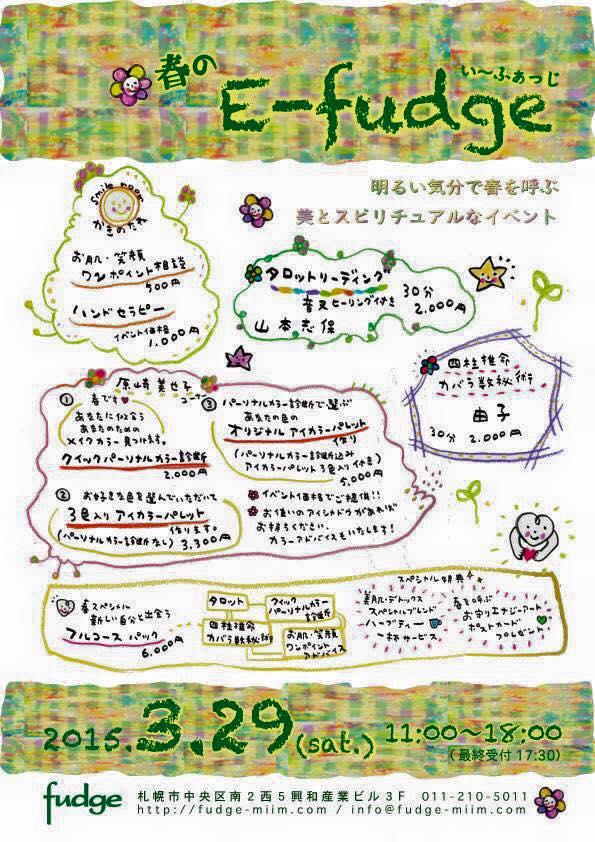 春の
い〜ふぁっじ
E-fudge
明るい気分で春を呼ぶ
美とスピリチュアルなイベント
smile room
かきのたね
お肌・笑顔
ワンポイント相談
500円
ハンドセラピー
イベント価格
1,000円
タロットリーディング
音叉ヒーリング付き
30分
2,000円
山本志保
四柱推命
カバラ数秘術
由子
30分 2,000円
原崎美世子
コーナー
①
春です
あなたに似合う
あなたのための
メイクカラー見つけます。
クイックパーソナルカラー診断
2,000円
② お好きな色を選んでいただいて
3色入りアイカラーパレット
作ります。
(パーソナルカラー診断なし) 3,300円
③ パーソナルカラー診断で選ぶ
あなたの色の
オリジナル アイカラーパレット
作り
(パーソナルカラー診断込み
アイカラーパレット3色入り付き)
5,000円
イベント価格でご提供!!
お使いのアイシャドウがあれば
お持ちください。
カラーアドバイスもいたします!
春スペシャル
新しい自分と出会う
フルコース パック
6,000円
タロット
クイック
パーソナルカラー
診断
四柱推命
カバラ数秘術
お肌・笑顔
ワンポイント
アドバイス
スペシャル特典
美肌・デトックス
スペシャルブレンド
ハーブティー
一杯サービス
春を呼ぶ
お守りエナジーアート
ポストカード
プレゼント
2015.3.29(sat.) 11:00〜18:00
(最終受付 17:30)
fudge
札幌市中央区南2西5興和産業ビル3F 011-210-5011
http://fudge-miim.com / info@fudge-miim.com